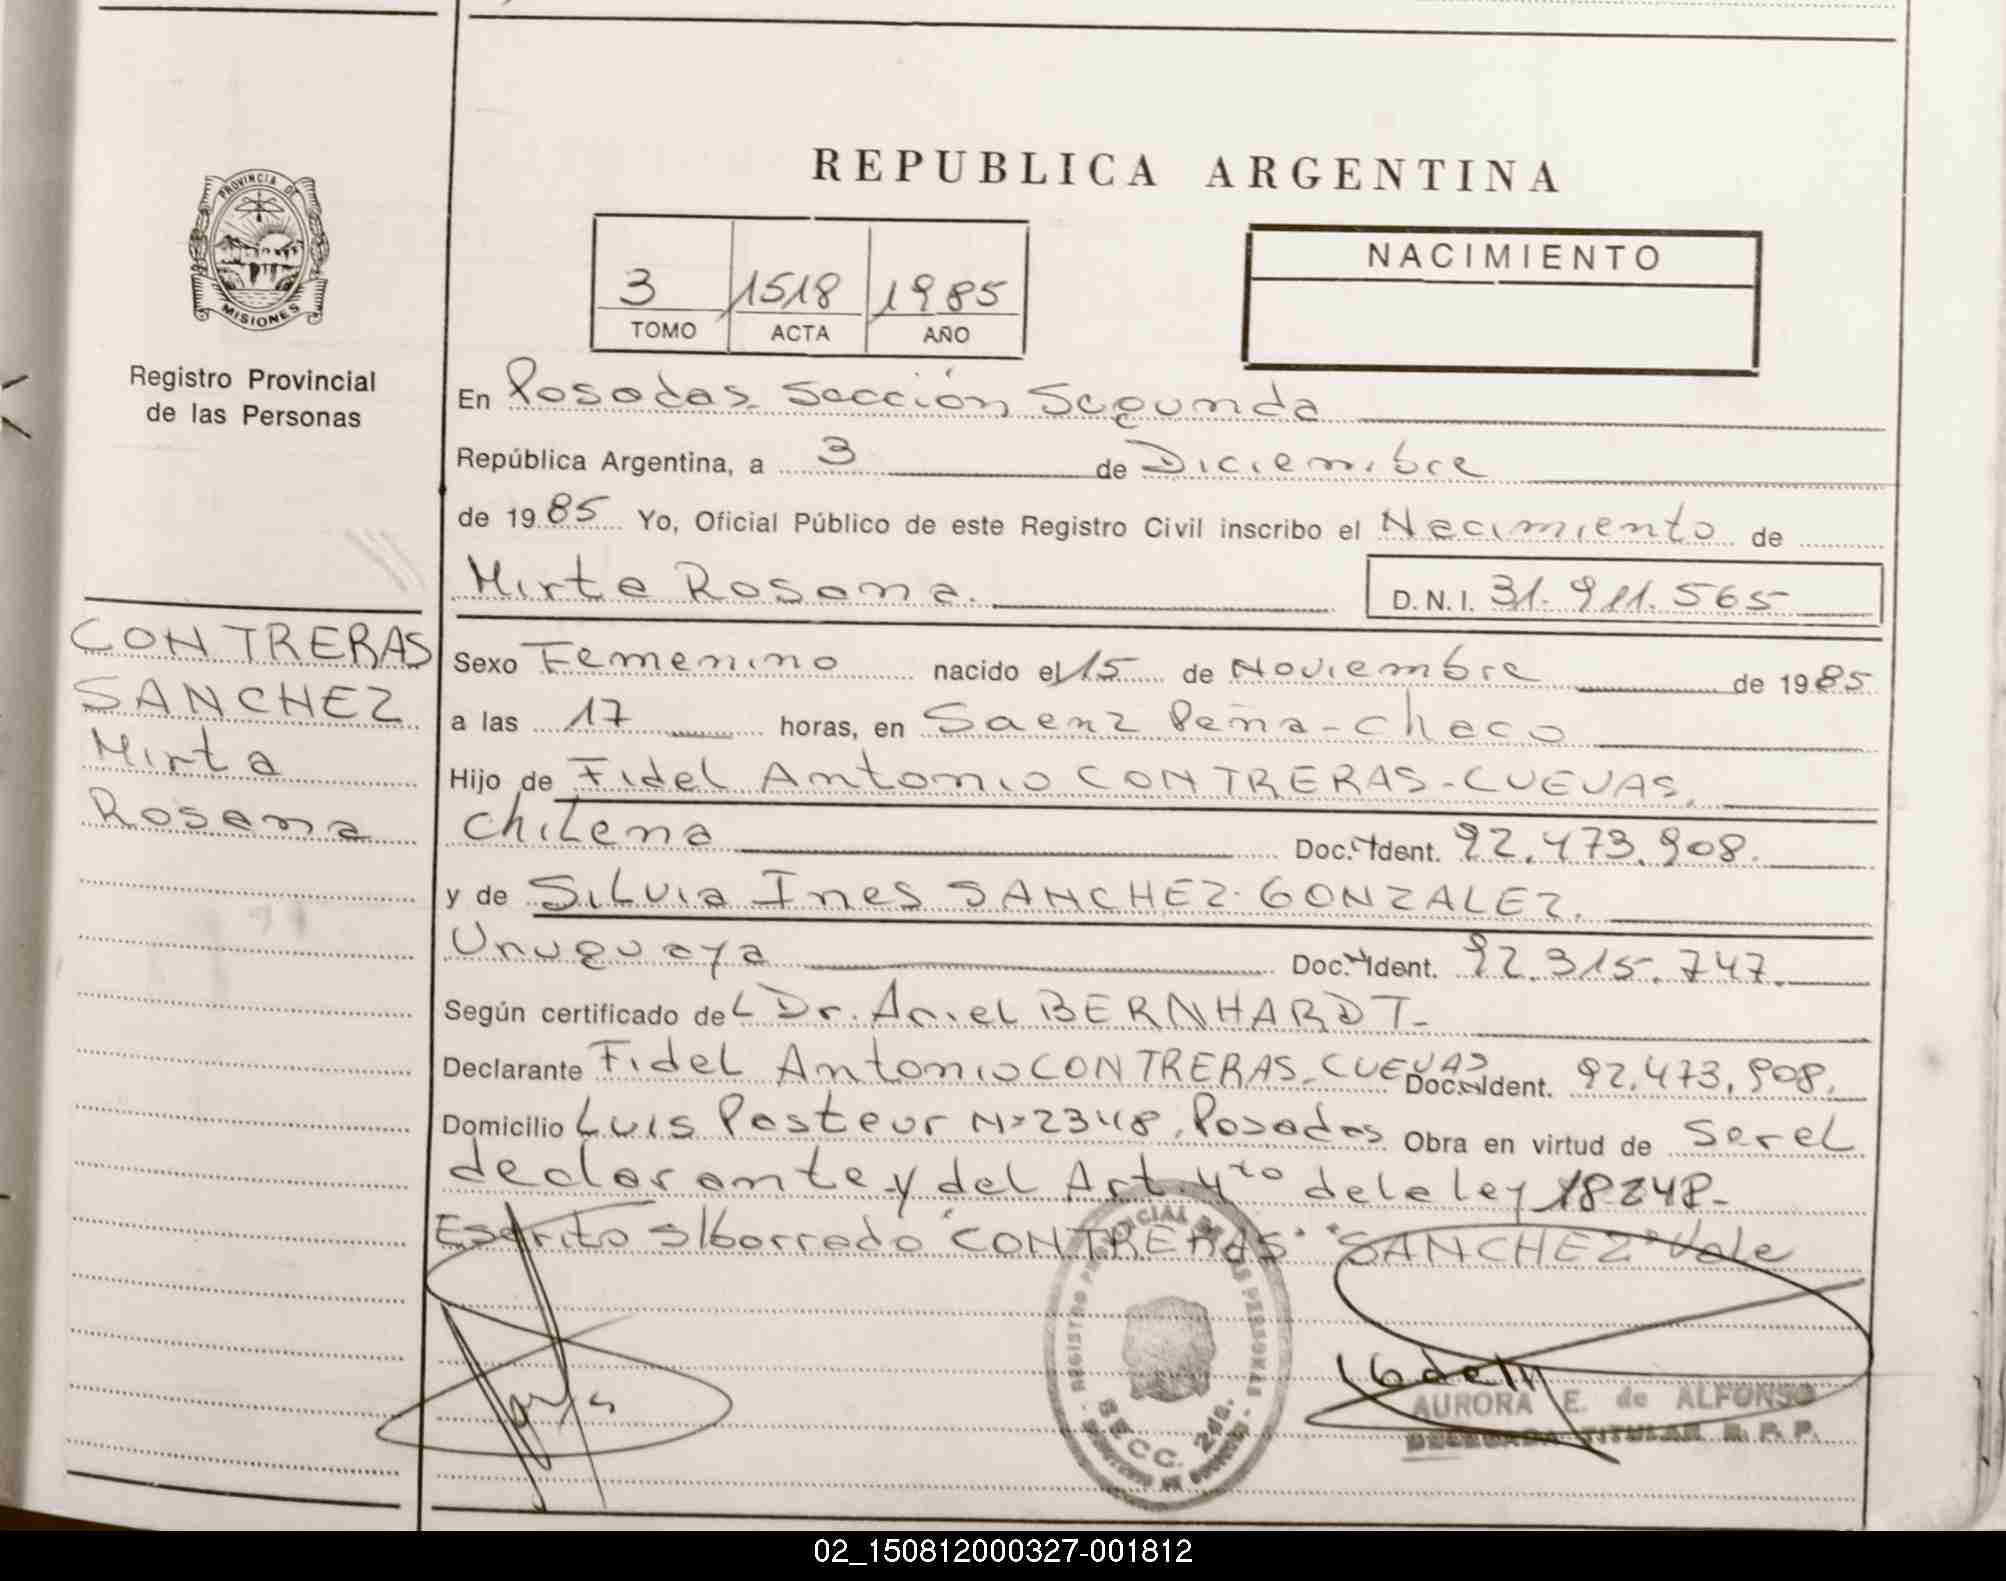 REPUBLICA ARGENTINA
PROVINCIA DE
MISIONES
Registro Provincial
de las Personas
3 1518 1985
TOMO ACTA AÑO
NACIMIENTO
En Posadas Sección Segunda
República Argentina, a 3 de Diciembre
de 1985 Yo, Oficial Público de este Registro Civil inscribo el Nacimiento de
Mirta Rosana. D.N.I. 31.911.565
CONTRERAS
SANCHEZ
Mirta
Rosana
Sexo Femenino nacido el 15 de Noviembre de 1985
a las 17 horas, en Saenz Peña-Chaco
Hijo de Fidel Antonio CONTRERAS-CUEVAS.
Chilena Doc. Ident. 92.473.908.
y de Silvia Ines SANCHEZ-GONZALEZ.
Uruguaya Doc. Ident. 92.315.747.
Según certificado del Dr. Ariel BERNHARDT-
Declarante Fidel Antonio CONTRERAS-CUEVAS Doc. Ident. 92.473.908.
Domicilio Luis Pasteur Nº 2348, Posadas Obra en virtud de ser el
declarante y del Art. 4to de la ley 18248-
Escrito s/borrado "CONTRERAS" "SANCHEZ" Vale
REGISTRO PROVINCIAL DE LAS PERSONAS
SECC. 2da.
AURORA E. de ALFONSO
DELEGADA TITULAR R. P. P.
02_150812000327-001812